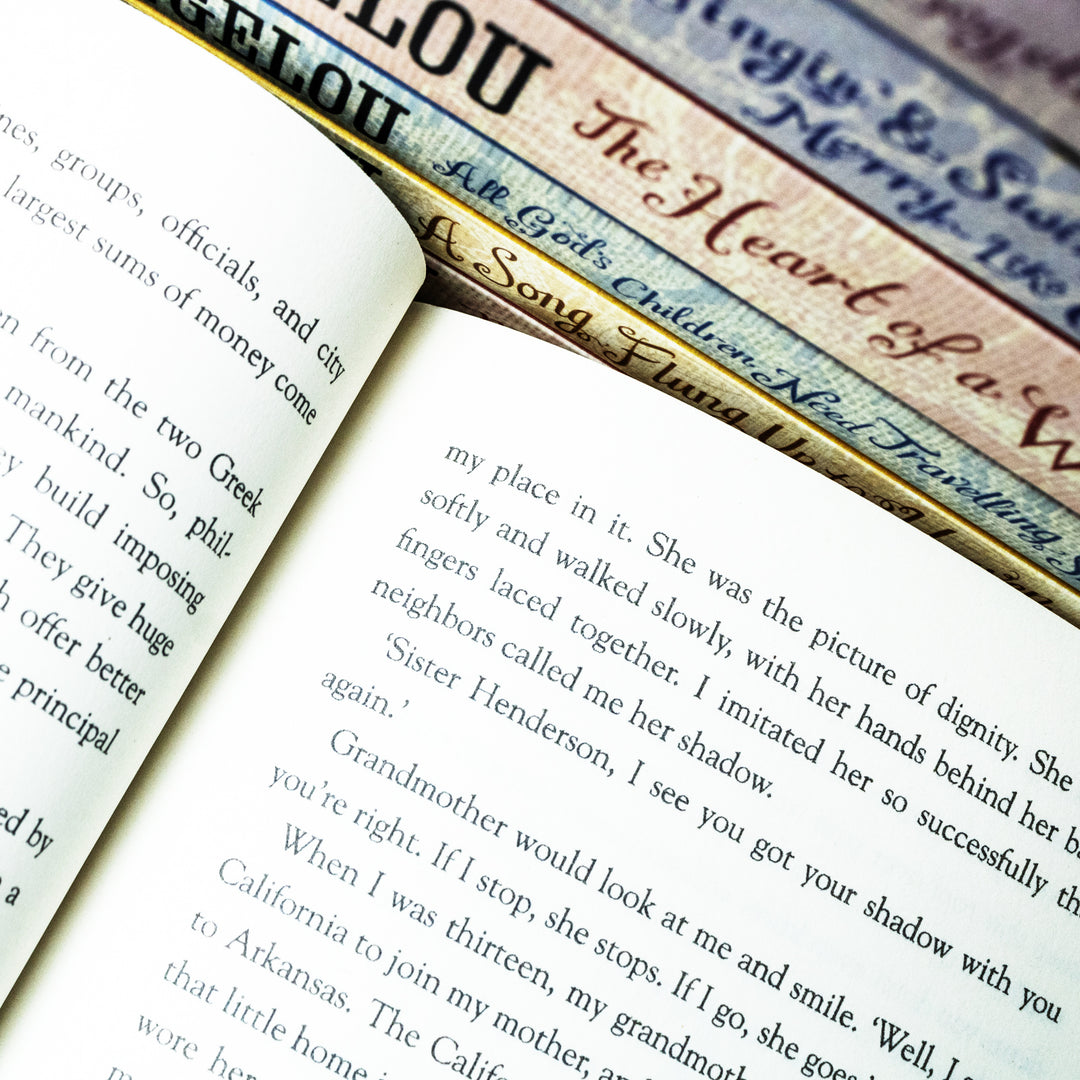 ELOU
GELOU
Singin' &
Merry Like
The Heart of a
All God's Children Need Travelling
A Song Flung Up to
groups, officials, and city
largest sums of money come
from the two Greek
mankind. So, phil-
build imposing
They give huge
offer better
principal
by
a
my place in it. She was the picture of dignity. She
softly and walked slowly, with her hands behind her
fingers laced together. I imitated her so successfully
neighbors called me her shadow.
‘Sister Henderson, I see you got your shadow with you
again.’
Grandmother would look at me and smile. ‘Well, I
you’re right. If I stop, she stops. If I go, she goes
When I was thirteen, my
California to join my mother,
to Arkansas. The
that little home
wore her